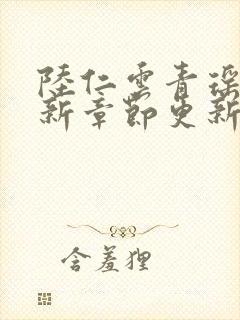 陸仁雲青瑤
新章節更新
含羞狸